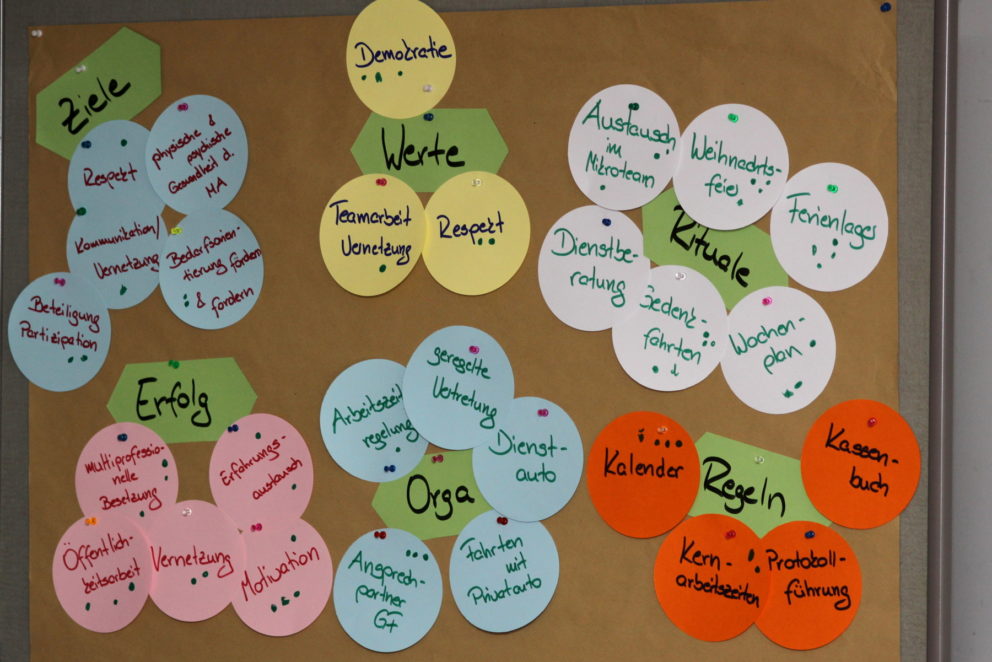 Ziele
Respekt
physische &
psychische
Gesundheit d.
MA
Kommunikation/
Vernetzung
Bedarfsorien-
tierung fördern
& fordern
Beteiligung
Partizipation
Demokratie
Werte
Teamarbeit
Vernetzung
Respekt
Austausch
im
Mikroteam
Weihnachts-
feier
Ferienlager
Rituale
Dienstbe-
ratung
Gedenk-
fahrten
Wochen-
plan
Erfolg
Multiprofessio-
nelle
Besetzung
Erfahrungs-
austausch
Öffentlich-
keitsarbeit
Vernetzung
Motivation
Arbeitszeit
regelung
geregelte
Vertretung
Dienst-
auto
Orga
Ansprech-
partner
GF
Fahrten
mit
Privatauto
Kalender
Regeln
Kassen-
buch
Kern-
arbeitszeiten
Protokoll-
führung